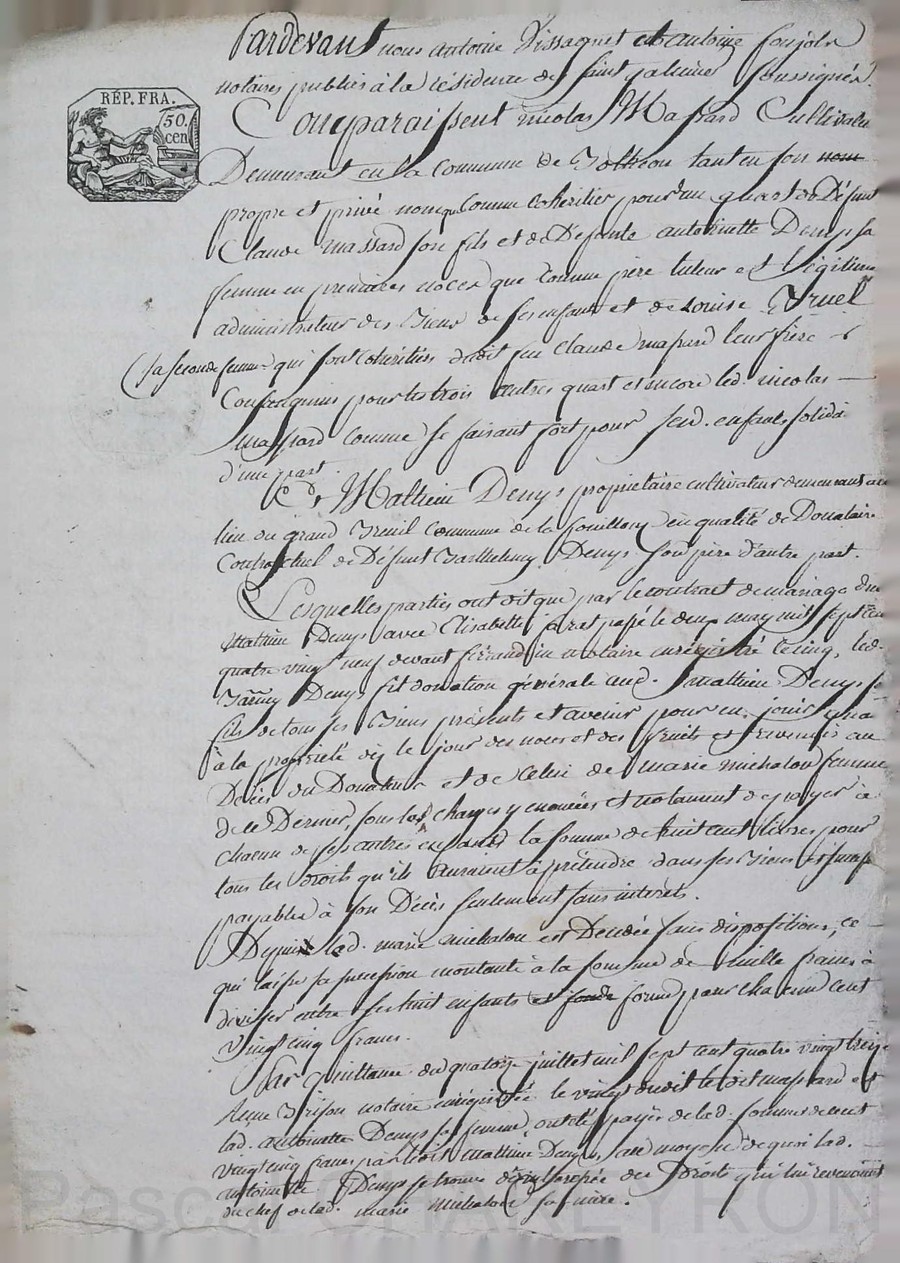 RÉP. FRA.
50.
cen
Pardevant nous antoine Dissagnet et antoine
notaires publics à la résidence de saint galmier soussignés.
Comparaissent nicolas Massard Cultivateur
Demeurant en la Commune de tant en son nom
propre et privé nom que Comme Cohéritier pour un quart de Défunt
Claude massard son fils et de Defunte antoinette Denys sa
femme en premieres noces que Comme père tuteur et légitime
administrateur des biens de ses enfants et de Louise
(sa seconde femme) qui sont Cohéritiers dudit feu Claude massard leur frère
Consanguins pour les trois autres quart et encore led. nicolas
massard Comme se faisant fort pour sesd. enfants, solid.
d'une part.
Et Mathieu Denys propriétaire cultivateur demeurant au
lieu du grand Commune de la fouillouse en qualité de Donataire
Contractuel de Défunt Barthelemy Denys son père d'autre part.
Lesquelles parties ont dit que par le contrat de mariage du
mathieu Denys avec Elisabeth passé le deux may mil sept cent
quatre vingt neuf devant notaire enregistré le cinq, led.
Denys fit donation générale aud. mathieu Denys
fils de tous ses biens présents et avenir pour en jouir quant
à la propriété dès le jour des noces et des fruits et revenus au
Décès du Donateur et de Celui de marie michalon femme
de ce Dernier, sous les charges y énoncées et notament de payer à
chacun de ses autres enfants la somme de huit cent livres pour
tous les droits qu'ils auraient à prétendre dans ses biens
payables à son Décès seulement sans interets.
Depuis lad. marie michalon est Décédée sans dispositions, ce
qui laisse sa succession montante à la somme de mille francs à
diviser entre ses huit enfants et forme pour chacun cent
vingt cinq francs.
Par quittance du quatorze juillet mil sept cent quatre vingt treize
notaire enregistrée le vingt dudit led. massard et
lad. antoinette Denys sa femme, ont été payés de lad. somme de cent
vingt cinq francs par ledit mathieu Denys, au moyen de quoi lad.
antoinette Denys se trouve des Droits qui lui revenaient
du chef de lad. marie michalon sa mère.
Pascal CHAREYRON